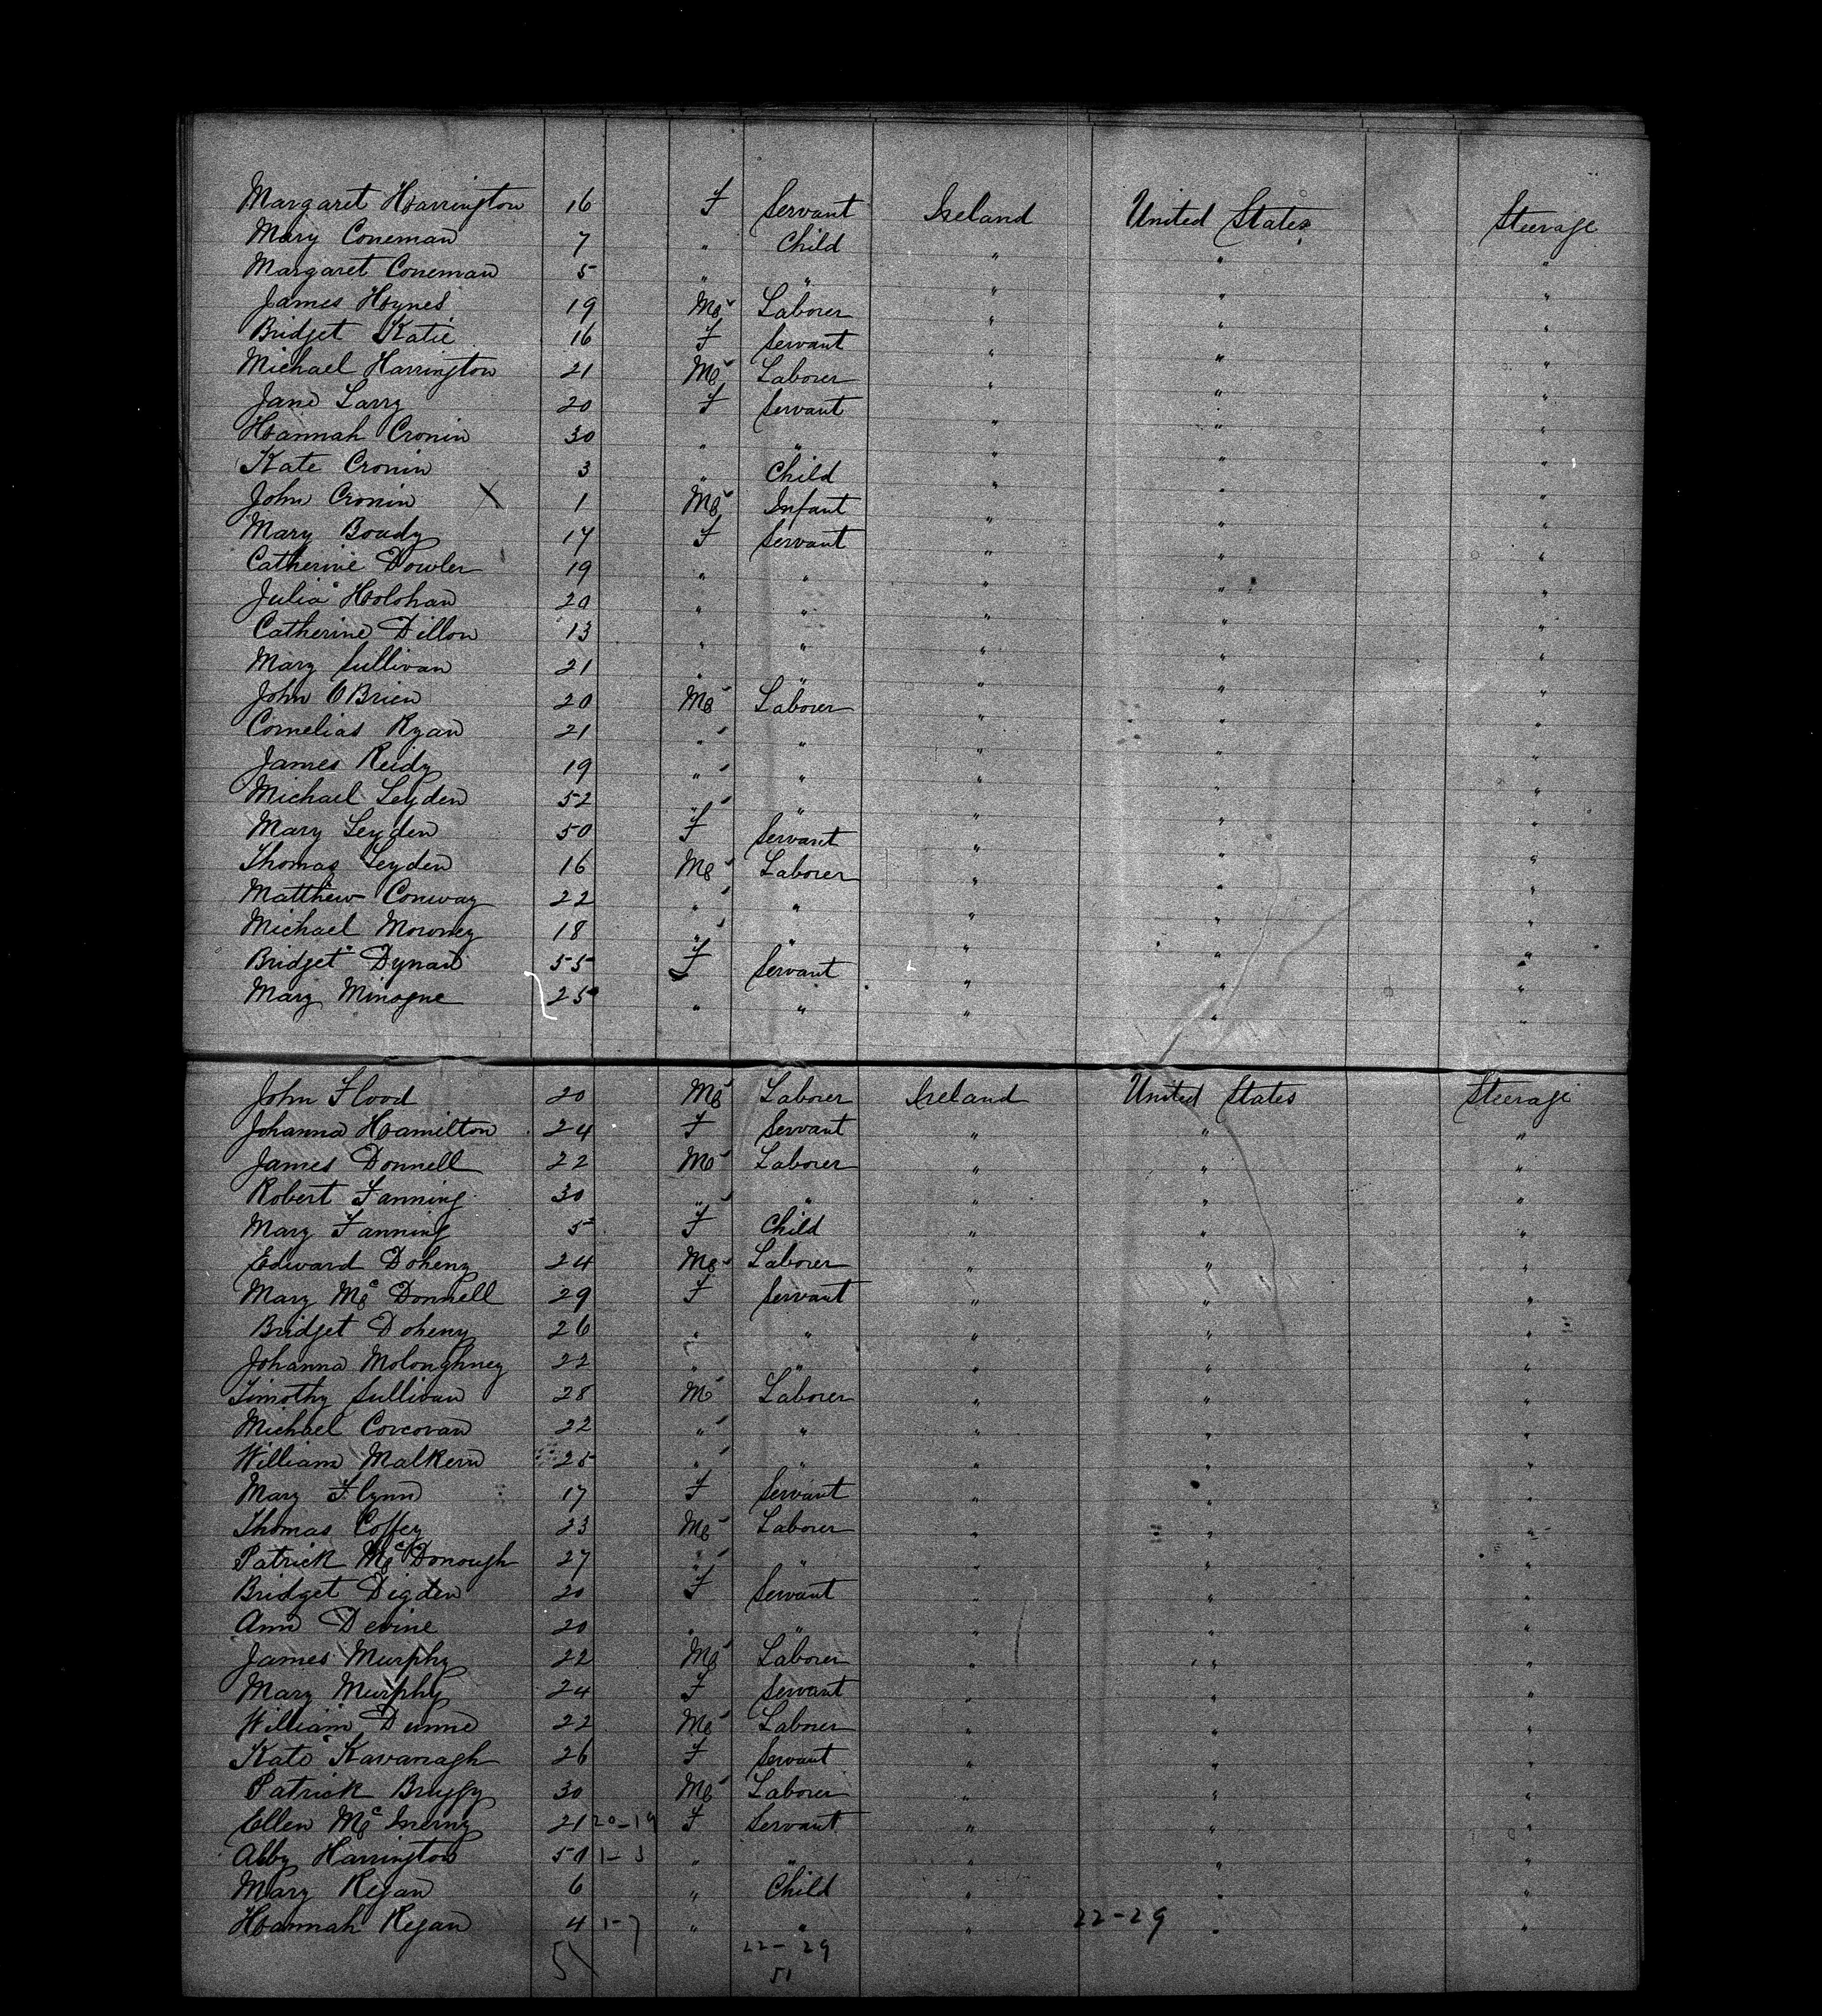 Margaret Harrington 16 F Servant Ireland United States Steerage
Mary Coneman 7 " Child " " "
Margaret Coneman 5 " " " " "
James Hynes 19 M Laborer " " "
Bridget Katie 16 F Servant " " "
Michael Harrington 21 M Laborer " " "
Jane Larry 20 F Servant " " "
Hannah Cronin 30 " " " " "
Kate Cronin 3 " Child " " "
John Cronin X 1 M Infant " " "
Mary Boudy 17 F Servant " " "
Catherine Dowler 19 " " " " "
Julia Holohan 20 " " " " "
Catherine Dillon 13 " " " " "
Mary Sullivan 21 " " " " "
John O'Brien 20 M Laborer " " "
Cornelias Ryan 21 " " " " "
James Reidy 19 " " " " "
Michael Leyden 52 " " " " "
Mary Leyden 50 F Servant " " "
Thomas Leyden 16 M Laborer " " "
Matthew Conway 22 " " " " "
Michael Moroney 18 " " " " "
Bridget Dynan 55 F Servant " " "
Mary Minogue 25 " " " " "
John Flood 20 M Laborer Ireland United States Steerage
Johanna Hamilton 24 F Servant " " "
James Donnell 22 M Laborer " " "
Robert Fanning 30 " " " " "
Mary Fanning 5 F Child " " "
Edward Doheny 24 M Laborer " " "
Mary Mc Donnell 29 F Servant " " "
Bridget Doheny 26 " " " " "
Johanna Moloughney 22 " " " " "
Timothy Sullivan 28 M Laborer " " "
Michael Corcoran 22 " " " " "
William Malkern 25 " " " " "
Mary Flynn 17 F Servant " " "
Thomas Coffey 23 M Laborer " " "
Patrick Mc Donough 27 " " " " "
Bridget Digden 20 F Servant " " "
Ann Devine 20 " " " " "
James Murphy 22 M Laborer " " "
Mary Murphy 24 F Servant " " "
William Dunne 22 M Laborer " " "
Kate Kavanagh 26 F Servant " " "
Patrick Bruffy 30 M Laborer " " "
Ellen Mc Inerny 21 20-19 F Servant " " "
Abby Harrington 50 1-3 " " " " "
Mary Regan 6 " Child " " "
Hannah Regan 4 1-7 " " " 22-29 " "
51 22-29
51